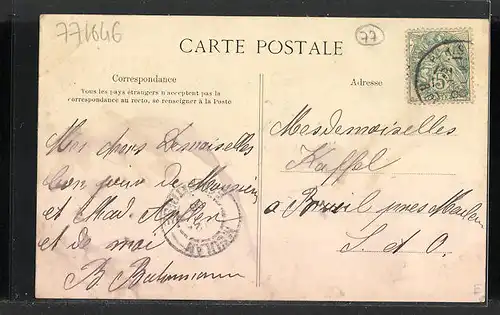 771646
77
CARTE POSTALE
Correspondance
Tous les pays étrangers n'acceptent pas la
correspondance au recto, se renseigner à la Poste
Adresse
Mes chers Demoiselles
bon jour de Monsieur
et Mad.
et de moi
B.
Mesdemoiselles
Kaffel
a Breuil pres Meulan
S. et O.
MEULAN